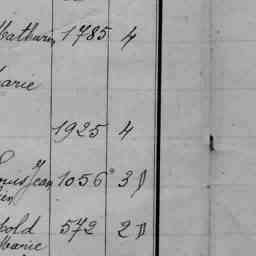 Mathurin 1785 4
Marie
1925 4
Louis Jean 1056 3
572 2
Marie